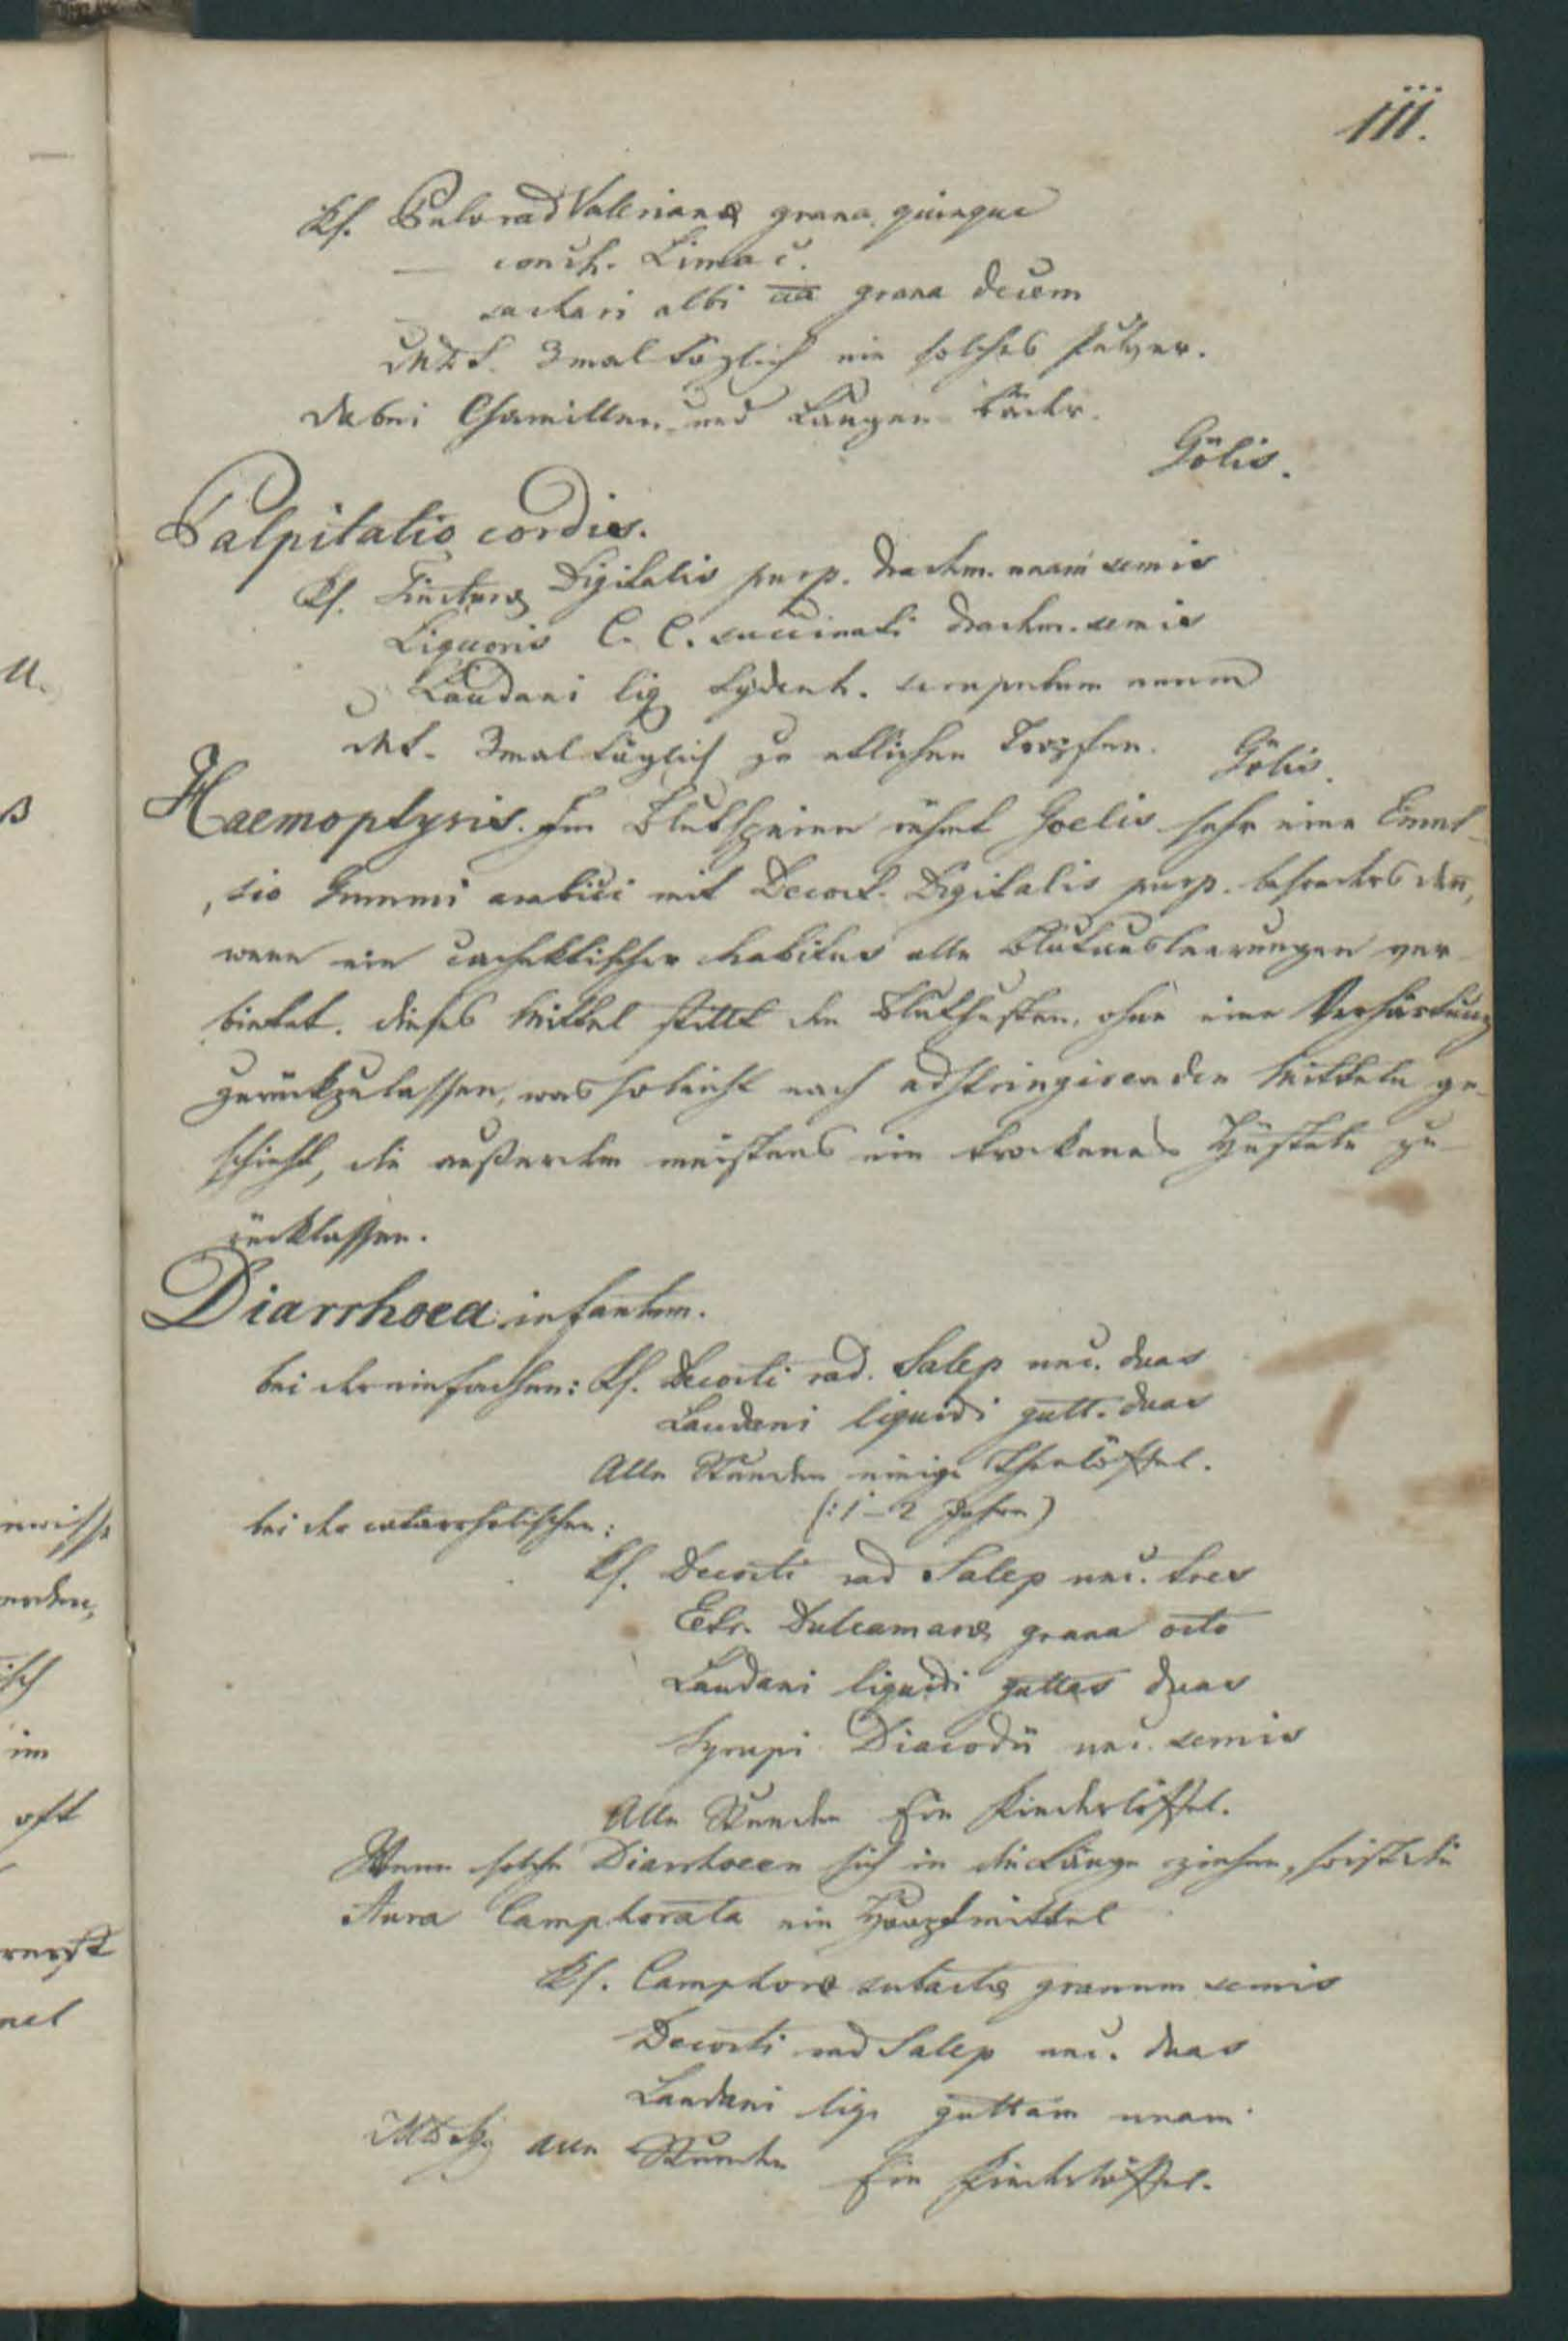 111.
Rf. Pulv rad Valerianæ grana quinque
— conch. Limac.
— sachari albi aa grana decem
MDS. 3mal täglich ein solches Pulver.
Dabei Chamillen und Laugen bäder.
Gölis.
Palpitatio cordis.
Rf. Tincturæ Digitalis purp. drachm. unam semis
Liquoris C. C. succinati drachm. semis
Laudani liq Sydenh. scrupulum unum
MS. 3mal täglich zu etlichen Tropfen. Gölis.
Haemoptysis. Im Blutspeien rühmt Goelis sehr eine Emul-
sio Gummi arabici mit Decoct. Digitalis purp. besonders dann,
wenn ein cachektischer habitus alle Blutausleerungen ver-
bietet. dieses Mittel stillt den Bluthusten, ohne eine Verhärtung
zurückzulassen, was so leicht nach adstringirenden Mitteln ge-
schieht, die außerdem meistens ein trockenes Hüsteln zu-
rücklassen.
Diarrhoea infantum.
bei der einfachen: Rf. Decocti rad. Salep unc. duas
Laudani liquidi gutt. duas
Alle Stunden einige Theelöffel.
(: 1–2 Jahre)
bei der catarrhalischen:
Rf. Decocti rad Salep unc. tres
Extr. Dulcamaræ grana octo
Laudani liquidi guttas duas
Syrupi Diacodii unc. semis
Alle Stunden Ein Kinderlöffel.
Wenn solche Diarrhoeen sich in die Länge ziehen, so ist die
Aura Camphorata ein Hauptmittel
Rf. Camphoræ subactæ granum semis
Decocti rad Salep unc. duas
Laudani liq. guttam unam
MD Sig alle Stunden Ein Kinderlöffel.